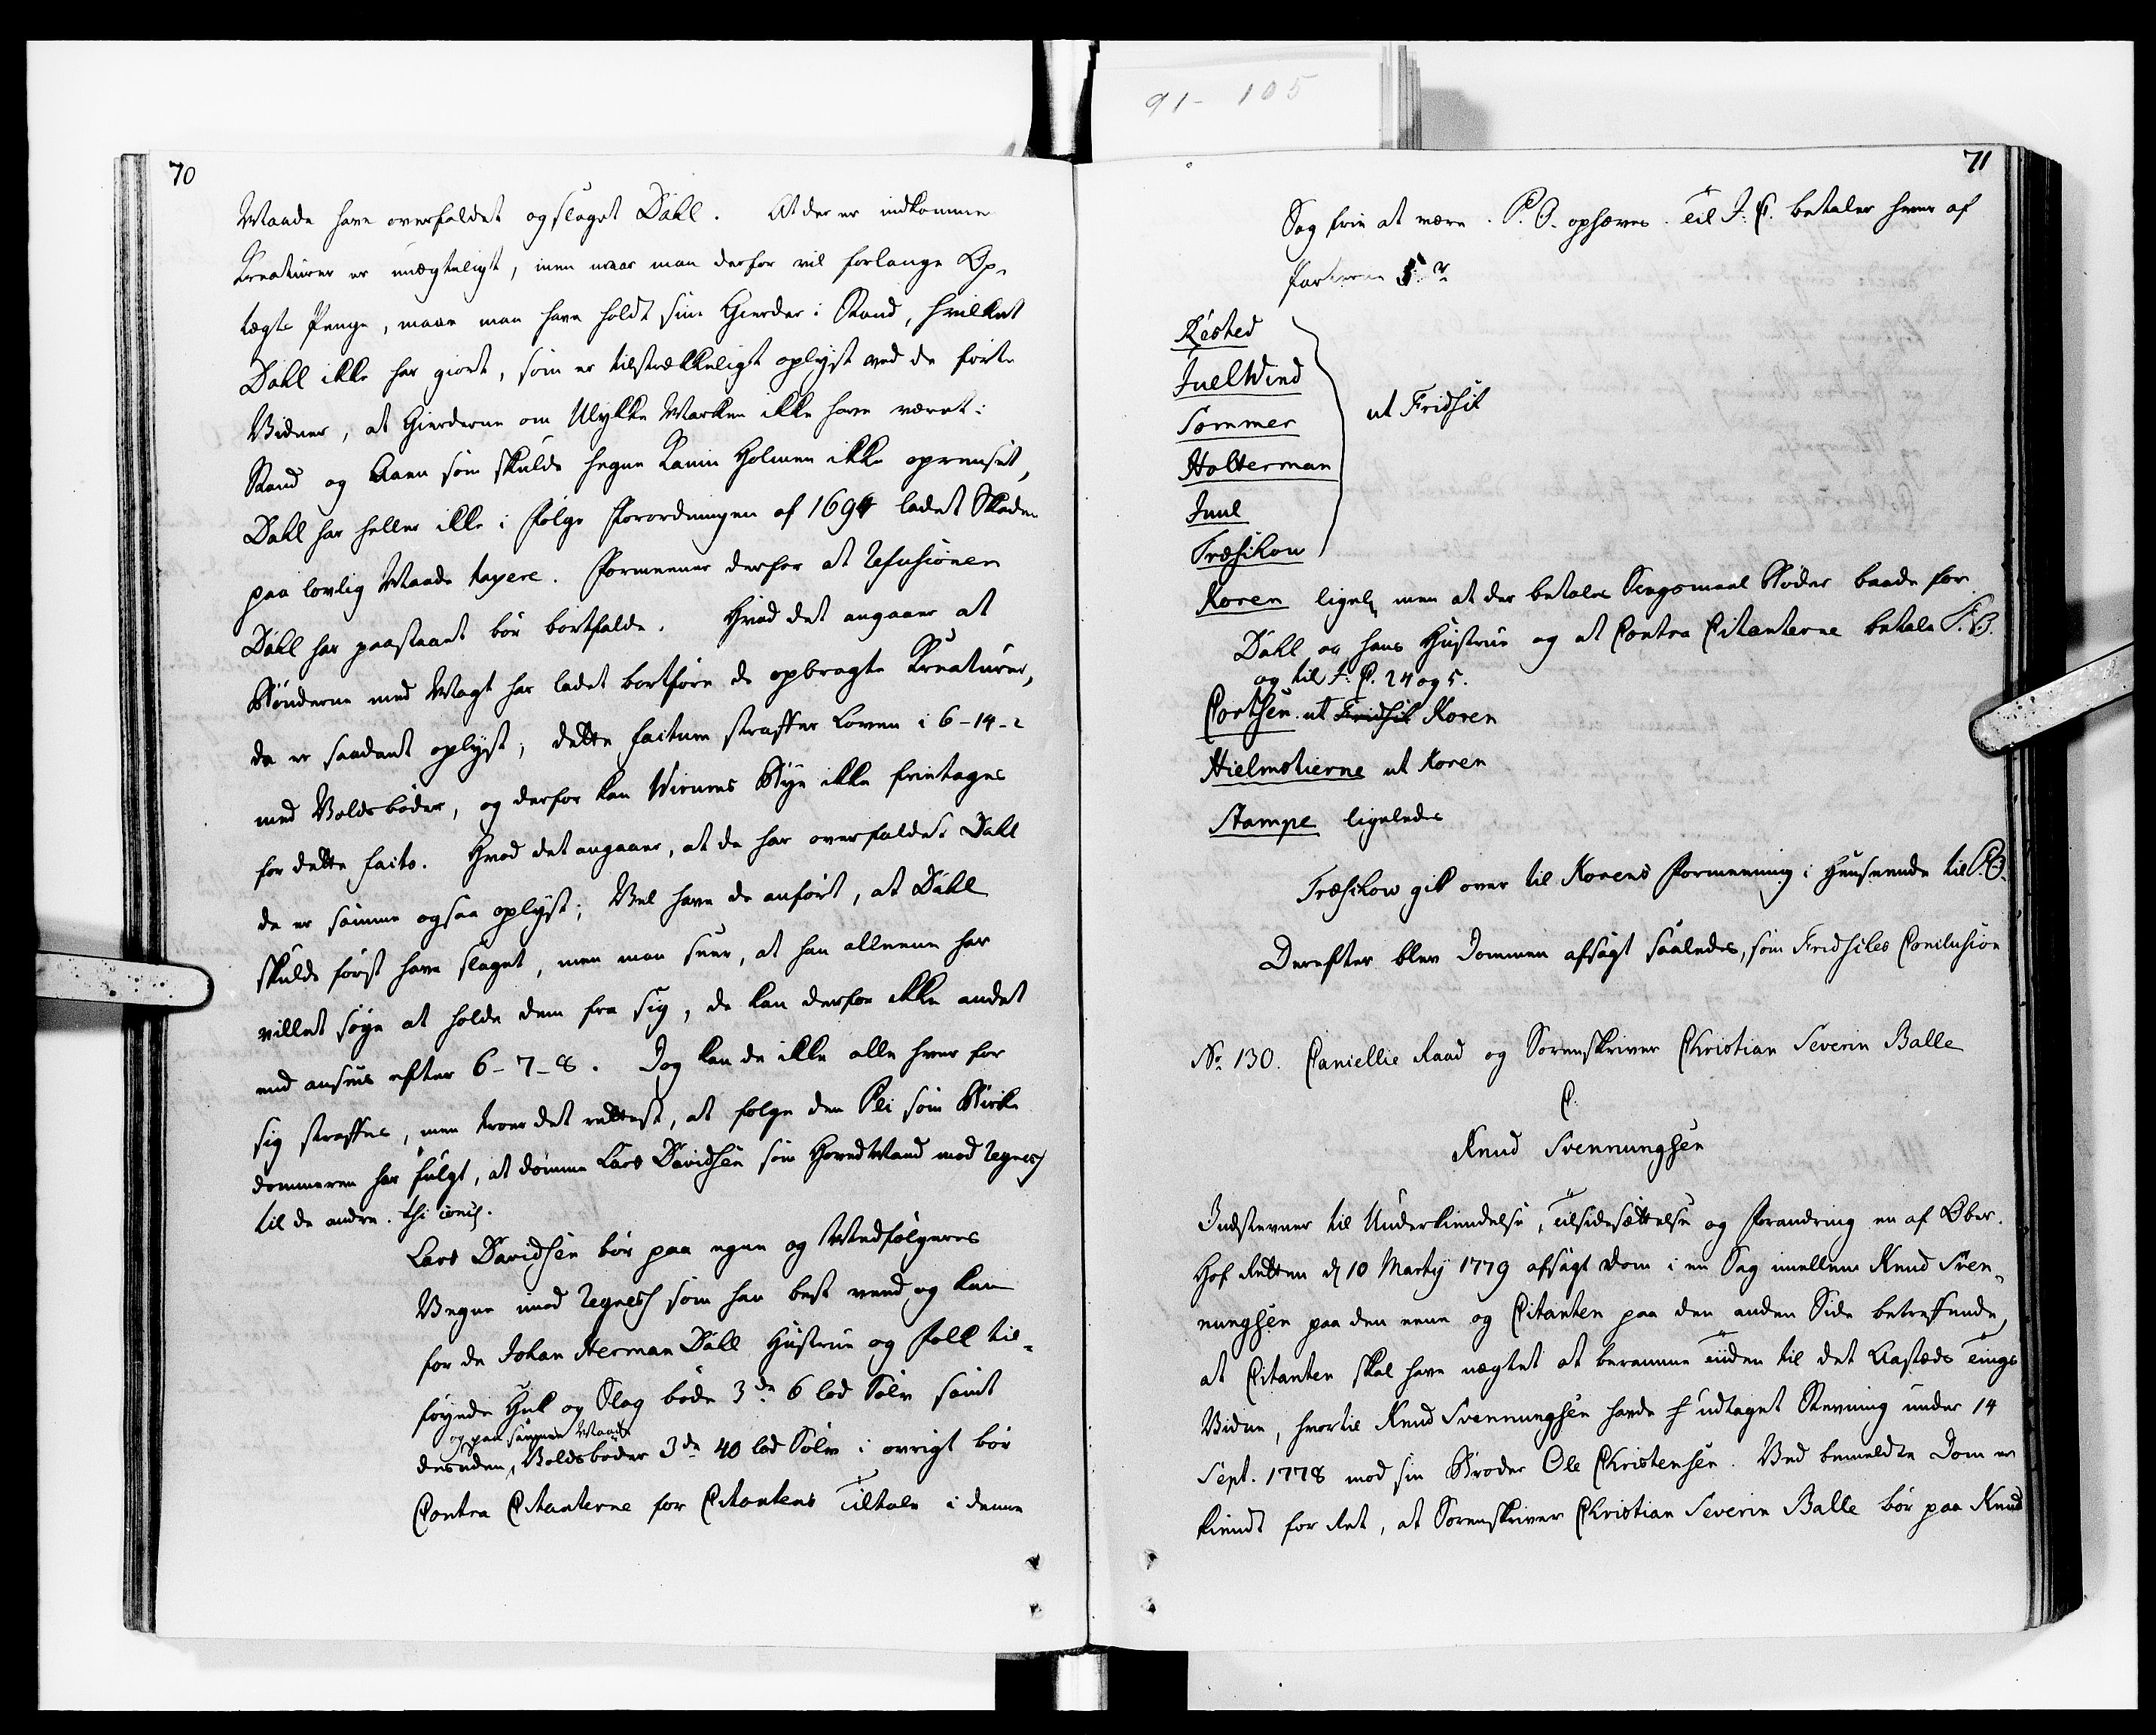 91-105
70
Maade have overfaldet og slaget Dahl. At der er indkomne
Kreaturer er unægteligt, men naar man derfor vil forlange Op-
tægts Penge, maae man have holdt sine Gierder i Stand, hvilket
Dahl ikke har giort, som er tilstrækkeligt oplyst ved de førte
Vidner, at Gierderne om Ulykke Marken ikke have været i
Stand og Aaen som skulde hegne Kanin Holmen ikke oprenset,
Dahl har heller ikke i Følge Forordningen af 1694 ladet Skaden
paa lovlig Maade taxere. Formeener derfor at Refusionen
Dahl har paastaaet bør bortfalde. Hvad det angaaer at
Bønderne med Magt har ladet bortføre de opbragte Kreaturer,
da er saadant oplyst; dette factum straffer Loven i 6-14-2
med Voldsbøder, og derfor kan Wirums Bye ikke frietages
for dette facto. Hvad det angaaer, at de har overfaldet Dahl
da er samme ogsaa oplyst; Vel have de anført, at Dahl
skulde først have slaget, men man seer, at han alleene har
villet søge at holde dem fra sig, de kan derfor ikke andet
end ansees efter 6-7-8. Dog kan de ikke alle hver for
sig straffes, men troer det rettest, at følge den Vei som Birke
dommeren har fulgt, at dømme Lars Davidsen som Hoved Mand med Regres
til de andre. thi concl.
Lars Davidsen bør paa egne og Medfølgeres
Vegne imod Regress som han best veed og kan
for de Johan Herman Dahl Hustrue og Folk til-
føyede Hug og Slag bøde 3de 6 lod Sølv samt
og paa samme Maade
desuden, Voldsbøder 3de 40 lod Sølv i øvrigt bør
Contra Citanterne for Citantens Tiltale i denne
71
Sag frie at være. P. O. ophæves. Til J: C. betaler hver af
Parterne 5 r
Kested
Juel Wind
Sommer
Holterman
Juul
Træschow
ut Fridsch
Koren ligel men at der betales Sengsmaal Bøder baade for
Dahl og hans Hustrue og at Contra Citanterne betale P. O.
og til J. C. 24 og 5.
Cortsen ut Fridsch Koren
Hielmstierne ut Koren
Stampe ligeledes
Træschow gik over til Korens Formeening i Henseende til P. O.
Derefter blev Dommen afsagt saaledes, som Fridsches Conclusion
No 130. Cancellie Raad og Sorenskriver Christian Severin Balle
C.
Knud Svennungsen
Indstevner til Underkiendelse, Tilsidesættelse og Forandring en af Ober-
Hof Retten d 10 Marty 1779 afsagt Dom i en Sag imellem Knud Sven-
nungsen paa den eene og Citanten paa den anden Side betreffende,
at Citanten skal have nægtet at beramme Tiiden til det Aastæds Tings
Vidne, hvortil Knud Svennungsen havde udtaget Stevning under 14
Sept. 1778 mod sin Broder Ole Christensen. Ved bemeldte Dom er
kiendt for Ret, at Sorenskriver Christian Severin Balle bør paa Knud